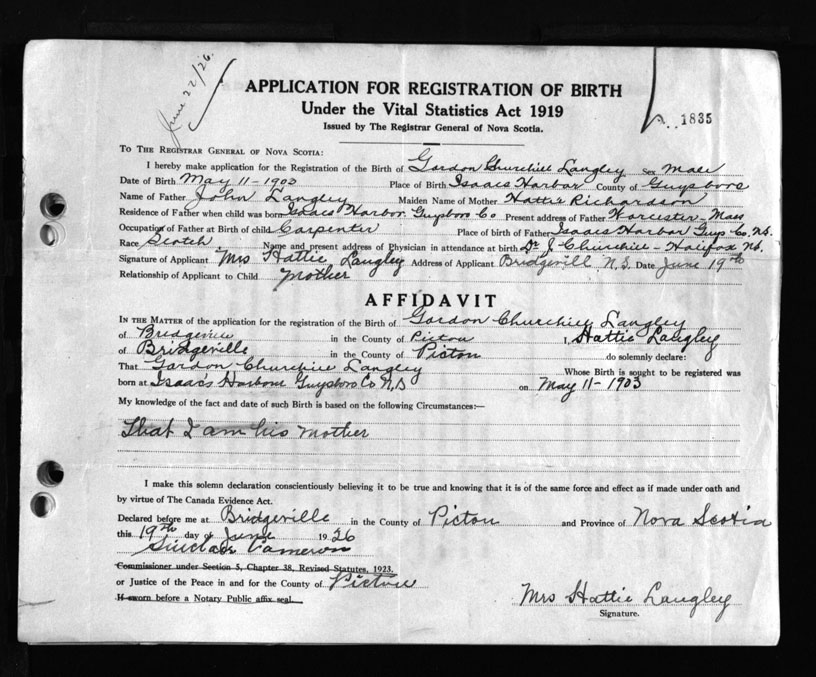 June 22/26.
APPLICATION FOR REGISTRATION OF BIRTH
Under the Vital Statistics Act 1919
Issued by The Registrar General of Nova Scotia.
1835
TO THE REGISTRAR GENERAL OF NOVA SCOTIA:
I hereby make application for the Registration of the Birth of Gordon Churchill Langley Sex Male
Date of Birth May 11-1903 Place of Birth Isaacs Harbor County of Guysboro
Name of Father John Langley Maiden Name of Mother Hattie Richardson
Residence of Father when child was born Isaacs Harbor Guysboro Co Present address of Father Worcester-Mass
Occupation of Father at Birth of child Carpenter Place of birth of Father Isaacs Harbor Guys Co. N.S.
Race Scotch Name and present address of Physician in attendance at birth Dr J. Churchill-Halifax NS.
Signature of Applicant Mrs Hattie Langley Address of Applicant Bridgevill N.S. Date June 19th
Relationship of Applicant to Child Mother
AFFIDAVIT
IN THE MATTER of the application for the registration of the Birth of Gordon Churchill Langley
of Bridgeville in the County of Picton I, Hattie Langley
of Bridgeville in the County of Picton do solemnly declare:
That Gordon Churchill Langley Whose Birth is sought to be registered was
born at Isaacs Harbour Guysboro Co N.S on May 11-1903
My knowledge of the fact and date of such Birth is based on the following Circumstances:—
That I am his mother
I make this solemn declaration conscientiously believing it to be true and knowing that it is of the same force and effect as if made under oath and
by virtue of The Canada Evidence Act.
Declared before me at Bridgeville in the County of Picton and Province of Nova Scotia
this 19th day of June 1926
Sinclair Cameron
Commissioner under Section 5, Chapter 38, Revised Statutes, 1923.
or Justice of the Peace in and for the County of Picton
If sworn before a Notary Public affix seal.
Mrs Hattie Langley
Signature.